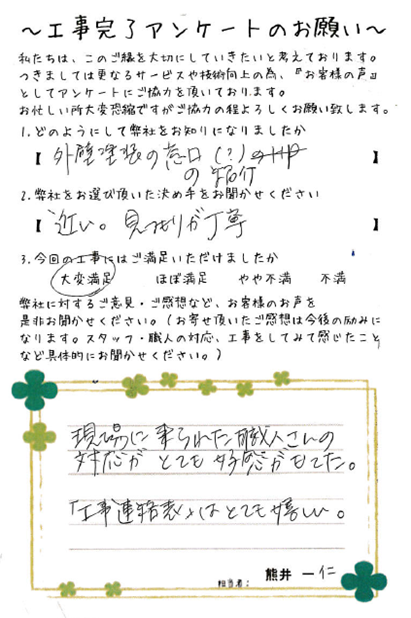 ～工事完了アンケートのお願い～
私たちは、このご縁を大切にしていきたいと考えております。
つきましては更なるサービスや技術向上の為、『お客様の声』
としてアンケートにご協力を頂いております。
お忙しい所大変恐縮ですがご協力の程よろしくお願い致します。
1.どのようにして弊社をお知りになりましたか
【 外壁塗装の窓口(?) 】
の紹介
2.弊社をお選び頂いた決め手をお聞かせください
【 近い。見つもりが丁寧 】
3.今回の工事にはご満足いただけましたか
大変満足 ほぼ満足 やや不満 不満
弊社に対するご意見・ご感想など、お客様のお声を
是非お聞かせください。(お寄せ頂いたご感想は今後の励みに
なります。スタッフ・職人の対応、工事をしてみて感じたこと
など具体的にお聞かせください。)
現場に来られた職人さんの
対応が とても好感がもてた。
「工事連絡表」はとても嬉しい。
担当者: 熊井 一仁